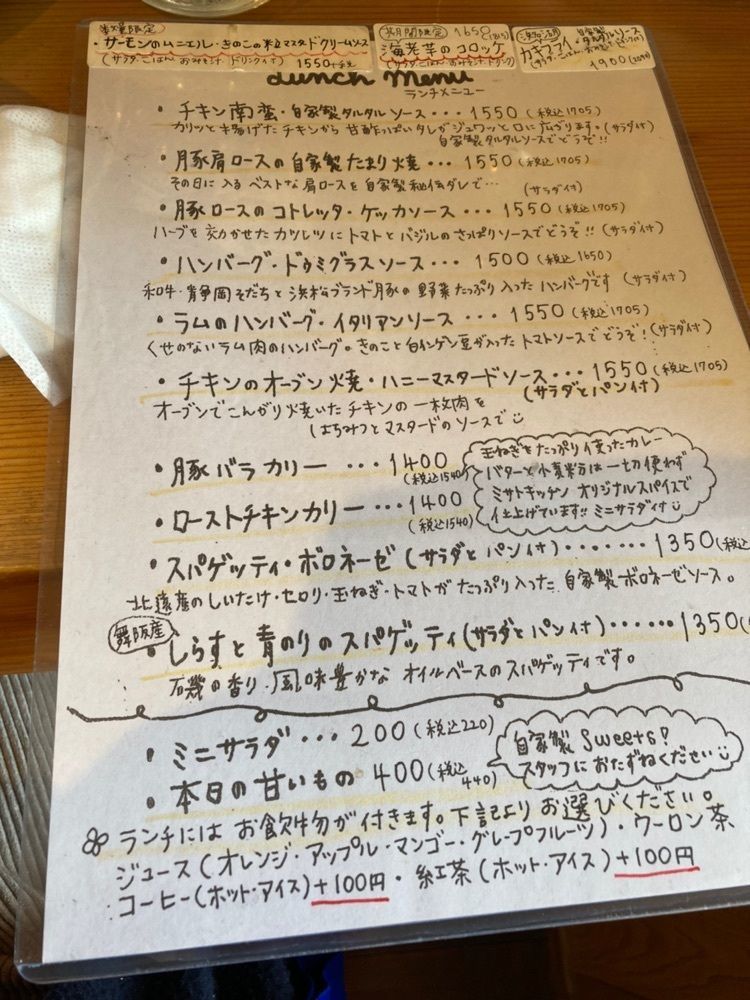 数量限定
・サーモンのムニエル・きのこの粒マスタードクリームソース
(サラダ、ごはん、おみそ汁、ドリンク付) 1550+税
1650
海老芋のコロッケ
(サラダ・ごはん・おみそ汁・ドリンク)
カキフライ・自家製タルタルソース
1900
Lunch Menu
ランチメニュー
・チキン南蛮・自家製タルタルソース・・・1550(税込1705)
カリッと揚げたチキンから甘酢っぱいタレがジュワッと口に広がります。(サラダ付)
自家製タルタルソースでどうぞ!!
・豚肩ロースの自家製たまり焼・・・1550(税込1705)
その日に入るベストな肩ロースを自家製秘伝ダレで… (サラダ付)
・豚ロースのコトレッタ・ケッカソース・・・1550(税込1705)
ハーブを効かせたカツレツにトマトとバジルのさっぱりソースでどうぞ!!(サラダ付)
・ハンバーグ・ドゥミグラスソース・・・1500(税込1650)
和牛・静岡そだちと浜松ブランド豚の野菜たっぷり入ったハンバーグです(サラダ付)
・ラムのハンバーグ・イタリアンソース・・・1550(税込1705)
くせのないラム肉のハンバーグ。きのこと白インゲン豆が入ったトマトソースでどうぞ!(サラダ付)
・チキンのオーブン焼・ハニーマスタードソース・・・1550(税込1705)
(サラダとパン付)
オーブンでこんがり焼いたチキンの一枚肉を
はちみつとマスタードのソースで
・豚バラカリー・・・1400
(税込1540)
・ローストチキンカリー・・・1400
(税込1540)
玉ねぎをたっぷり使ったカレー
バターと小麦粉は一切使わず
ミサトキッチンオリジナルスパイスで
仕上げています!!ミニサラダ付
・スパゲッティ・ボロネーゼ(サラダとパン付)・・・・・・・1350(税込
北遠産のしいたけ・セロリ・玉ねぎ・トマトがたっぷり入った自家製ボロネーゼソース。
舞阪産
・しらすと青のりのスパゲッティ(サラダとパン付)・・・・・・1350(
磯の香り、風味豊かなオイルベースのスパゲッティです。
・ミニサラダ・・・200(税込220)
・本日の甘いもの 400(税込440)
自家製Sweets?
スタッフにおたずねください
ランチにはお飲物が付きます。下記よりお選びください。
ジュース(オレンジ・アップル・マンゴー・グレープフルーツ)・ウーロン茶
コーヒー(ホット・アイス)+100円・紅茶(ホット・アイス)+100円